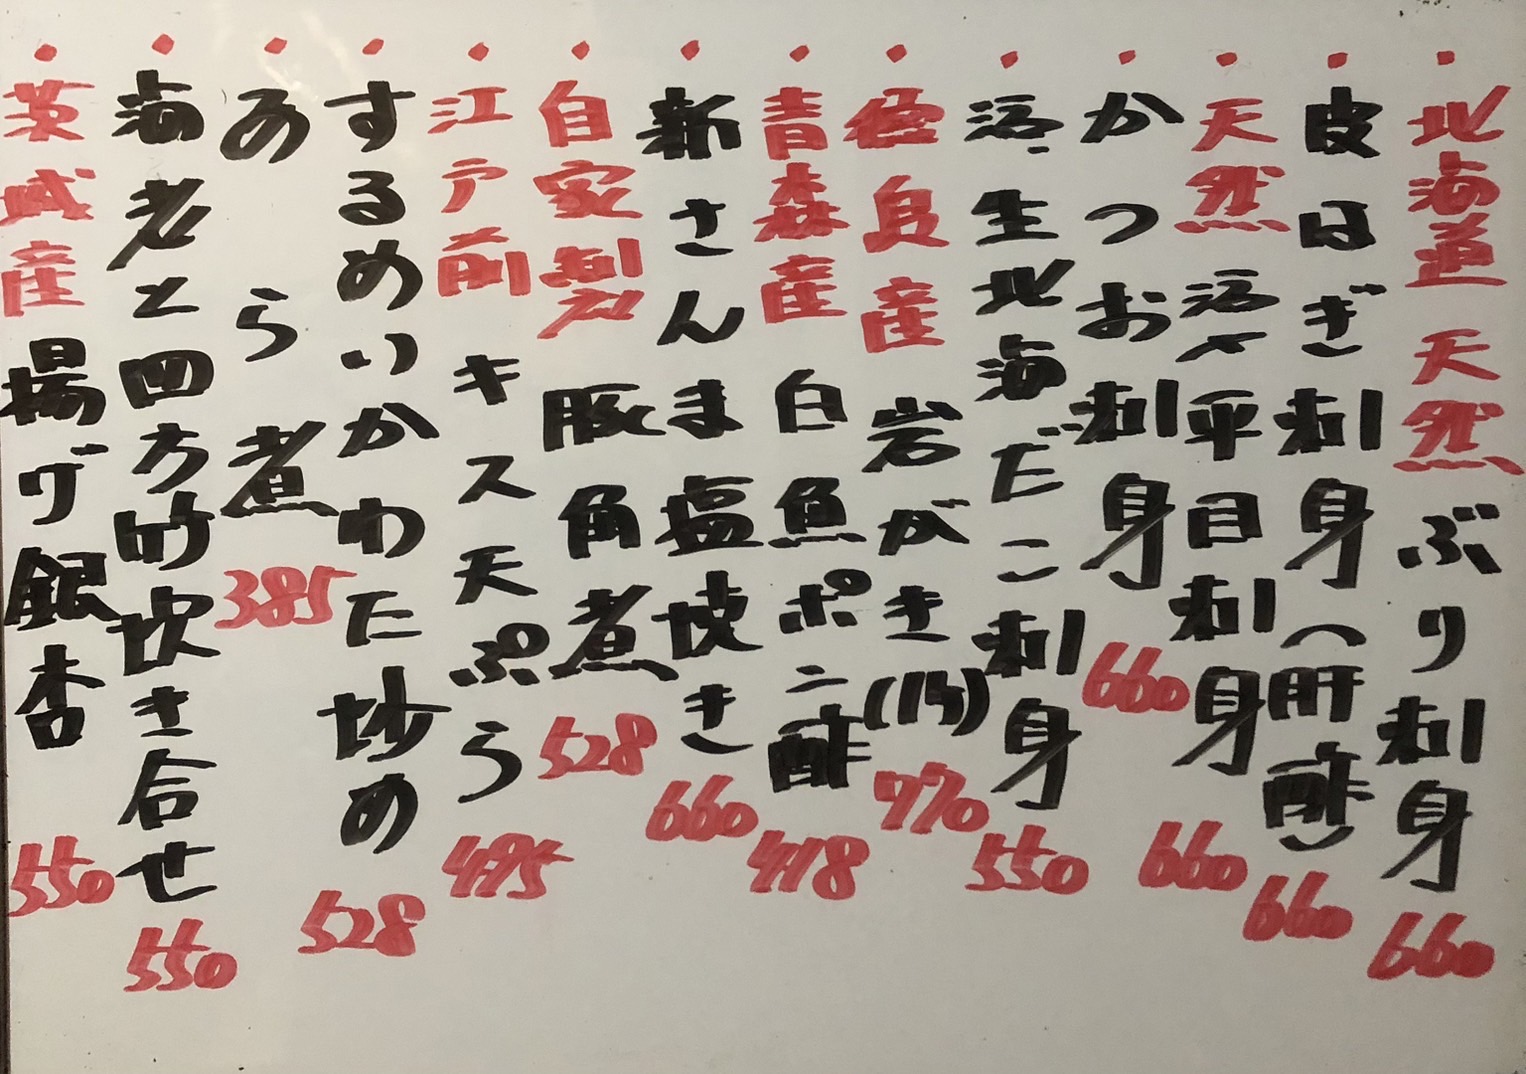 ・北海道 天然 ぶり刺身 660
・皮はぎ刺身(肝酢) 660
・天然 活〆平目刺身 660
・かつお刺身 660
・活〆生北海だこ刺身 550
・奈良産 岩がき(1ケ) 770
・青森産 白魚ポン酢 418
・新さんま塩焼き 660
・自家製 豚角煮 528
・江戸前 キス天ぷら 495
・するめいかわた炒め 528
・あら煮 385
・海老と四方竹炊き合せ 550
・茨城産 揚げ銀杏 550